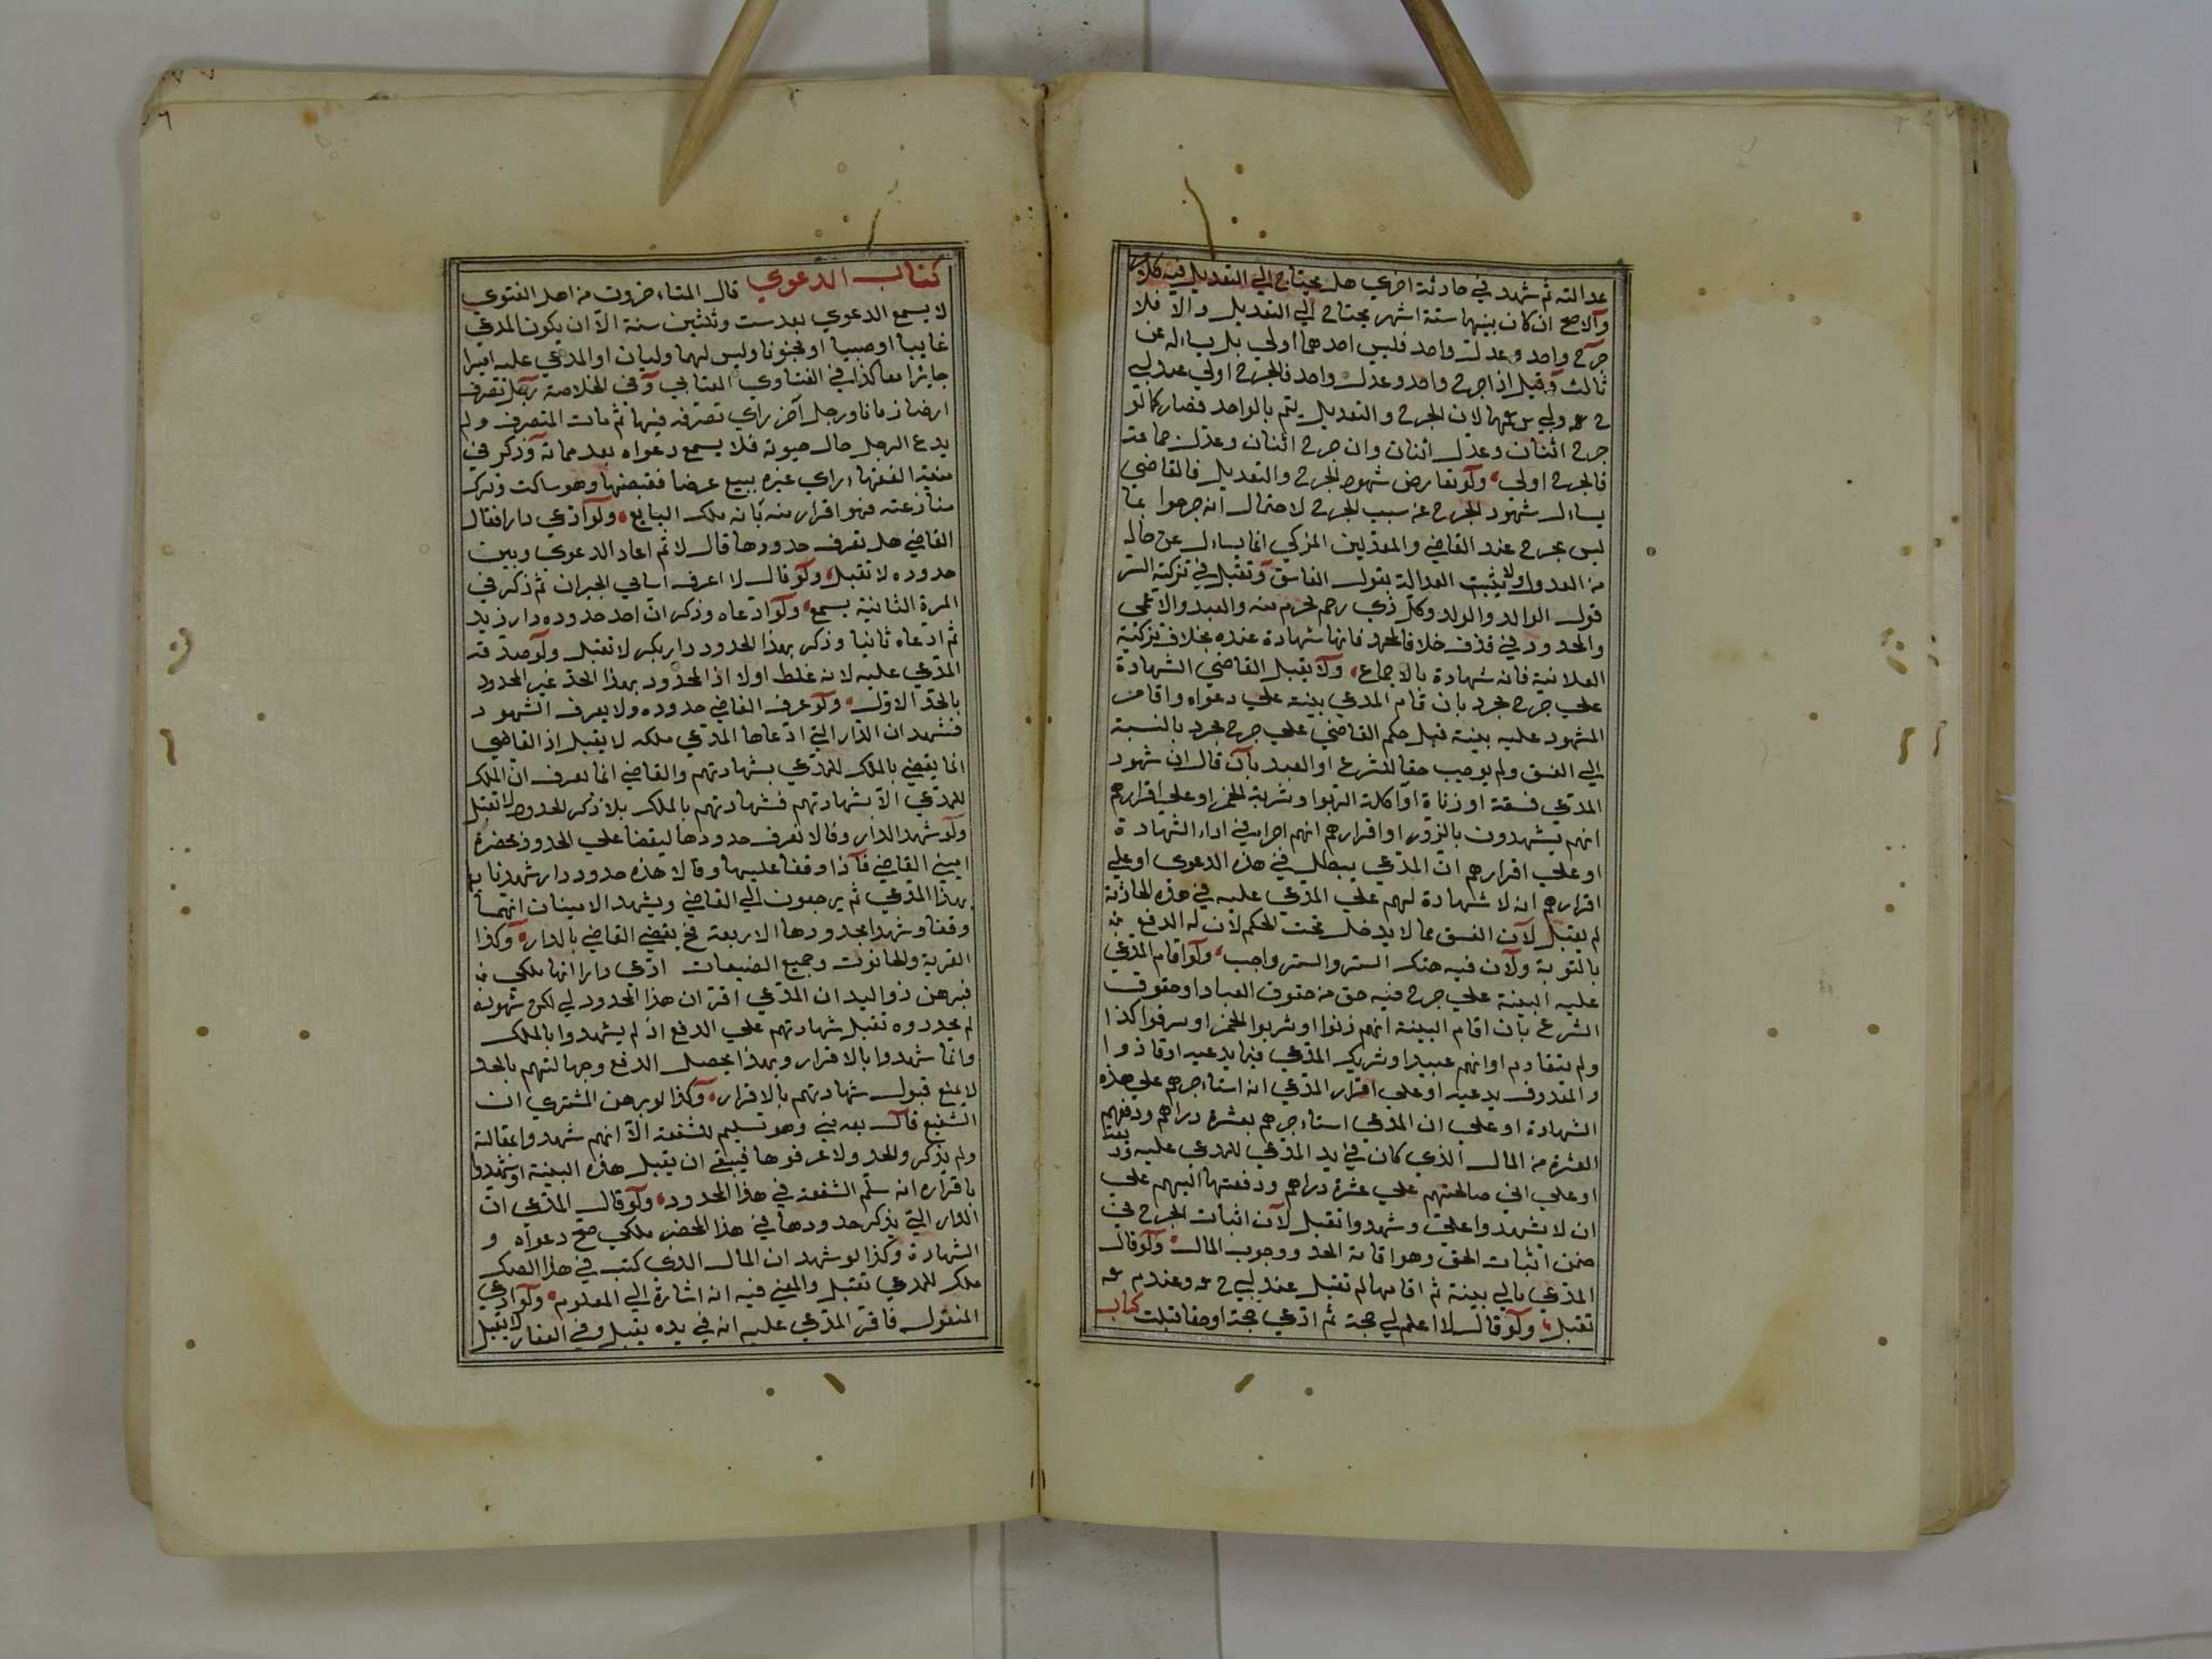 عدالته ثم شهد في حادثة اخري هل يحتاج الي التعديل فيه كلام
والاصح ان كان بينهما ستة اشهر يحتاج الي التعديل والا فلا
جرح واحد وعدل واحد فليس احدهما اولي بل يساله عن
ثالث وقيل اذا جرح واحد وعدل واحد فالجرح اولي عند ابي
لان الجرح والتعديل يتم بالواحد فصار كما لو
جرح اثنان وعدل اثنان وان جرح اثنان وعدل جماعة
فالجرح اولي ولو تعارض شهود الجرح والتعديل فالقاضي
يسال شهود الجرح عن سبب الجرح لاحتمال انه جرحوا بما
ليس بجرح عند القاضي والمعدلين المزكي انما يسال عن حاله
من العدول ولا يثبت العدالة بقول الفاسق وتقبل في تزكية السر
قول الوالد والولد وكل ذي رحم محرم منه والعبد والاعمي
والمحدود في قذف خلافا لمحمد فانها شهادة عنده بخلاف تزكية
العلانية فانه شهادة بالاجماع ولا يقبل القاضي الشهادة
علي جرح مجرد بان قام المدعي بينة علي دعواه واقامن
المشهود عليه بينة قبل حكم القاضي علي جرح مجرد بالنسبة
الي الفسق ولم يوجب حقا للشرع او العبد بان قال ان شهود
المدعي فسقة او زناة او اكلة الربوا وشربة الخمر او علي اقرارهم
انهم يشهدون بالزور او اقرارهم انهم اجراء في اداء الشهادة
او علي اقرارهم ان المدعي يبطل في هذه الدعوي او علي
اقرارهم ان لا شهادة لهم علي المدعي عليه في هذه الحادثة
لم يقبل لان الفسق مما لا يدخل تحت الحكم لان له الدفع
بالتوبة ولان فيه هتك الستر والستر واجب ولو اقام المدعي
عليه البينة علي جرح فيه حق من حقوق العباد او حقوق
الشرع بان اقام البينة انهم زنوا او شربوا الخمر او سرقوا كذا
ولم يتقادم او انهم عبيد او شريك المدعي فيما يدعيه او قاذوا
والمقذوف يدعيه او علي اقرار المدعي انه استاجرهم علي هذه
الشهادة او علي ان المدعي استاجرهم بعشرة دراهم ودفعهم
العشرة من المال الذي كان في يد المدعي للمدعي عليه
او علي اني صالحتهم علي عشرة دراهم ودفعتها اليهم علي
ان لا يشهدوا علي وشهدوا تقبل لان اثبات الجرح في
ضمن اثبات الحق وهو اقامة الحد ووجوب المال ولو قال
المدعي مالي بينة ثم اقامها لم تقبل عند ابي ح وعندم
تقبل ولو قال لا اعلم لي حجة ثم ادعي حجة او حقا قبلت كتاب
كتاب الدعوي قال المتاخرون من اهل الفتوي
لا يسمع الدعوي بعد ست وثلثين سنة الا ان يكون المدعي
غايبا او صبيا او مجنونا وليس لهما وليان او المدعي عليه اميرا
جايرا معا كذا في الفتاوي العتابي وفي الخلاصة رجل تصرف
ارضا زمانا ورجل آخر راي تصرفه فيها ثم مات المتصرف ولم
يدع الرجل حال حيوته فلا يسمع دعواه بعد مماته وذكر في
منية الفقهاء راي غيره يبيع عرضا فقبضها وهو ساكت وترك
منازعته فهو اقرار منه بانه ملك البايع ولو ادعي دارا فقال
القاضي هل تعرف حدودها قال لا ثم اعاد الدعوي وبين
حدوده لا تقبل ولو قال لا اعرف اسامي الجيران ثم ذكر في
المرة الثانية يسمع ولو ادعاه وذكر ان احد حدوده دار زيد
ثم ادعاه ثانيا وذكر بهذا الحدود دار بكر لا تقبل ولو صدقه
المدعي عليه لانه غلط اولا اذ المحدود بهذا الحد غير المحدود
بالحد الاول ولو عرف القاضي حدوده ولا يعرف الشهود
فشهد ان الدار التي ادعاها المدعي ملكه لا يقبل اذ القاضي
انما يقضي بالملك للمدعي بشهادتهم والقاضي انما يعرف ان الملك
للمدعي الا بشهادتهم فشهادتهم بالملك بلا ذكر الحدود لا تقبل
ولو شهد الدار وقالا نعرف حدودها ليقفا علي الحدود بحضرة
اميني القاضي فاذا وقفا عليها وقالا هذه حدود دار شهدنا بها
بهذا المدعي ثم يرجعون الي القاضي ويشهد الامينان انهما
وقفا وشهدا بحدودها الاربعة يقضي القاضي بالدار وكذا
القرية والحانوت وجميع الضيعات ادعي دارا انها ملكي
فبرهن ذو اليد ان المدعي اقر ان هذا المحدود لي لكن شهوده
لم يحددوه تقبل شهادتهم علي الدفع اذ لم يشهدوا بالملك
وانما شهدوا بالاقرار وبهذا يحصل الدفع وجهالتهم بالحد
لا يمنع قبول شهادتهم بالاقرار وكذا لو برهن المشتري ان
الشفيع قال بعه مني وهو تسليم للشفعة الا انهم شهدوا بمقالته
ولم يذكر والحد ولا عرفوها فينبغي ان يقبل هذه البينة او شهدوا
باقراره انه سلم الشفعة في هذا المحدود ولو قال المدعي ان
الدار التي يذكر حدودها في هذا المحضر ملكي صح دعواه و
الشهادة وكذا لو شهد ان المال الذي كتب في هذا الصك
ملك للمدعي تقبل والمعني فيه انه اشارة الي المعلوم ولو ادعي
المنقول فاقر المدعي عليه انه في يده يقبل وفي العقار لا يقبل